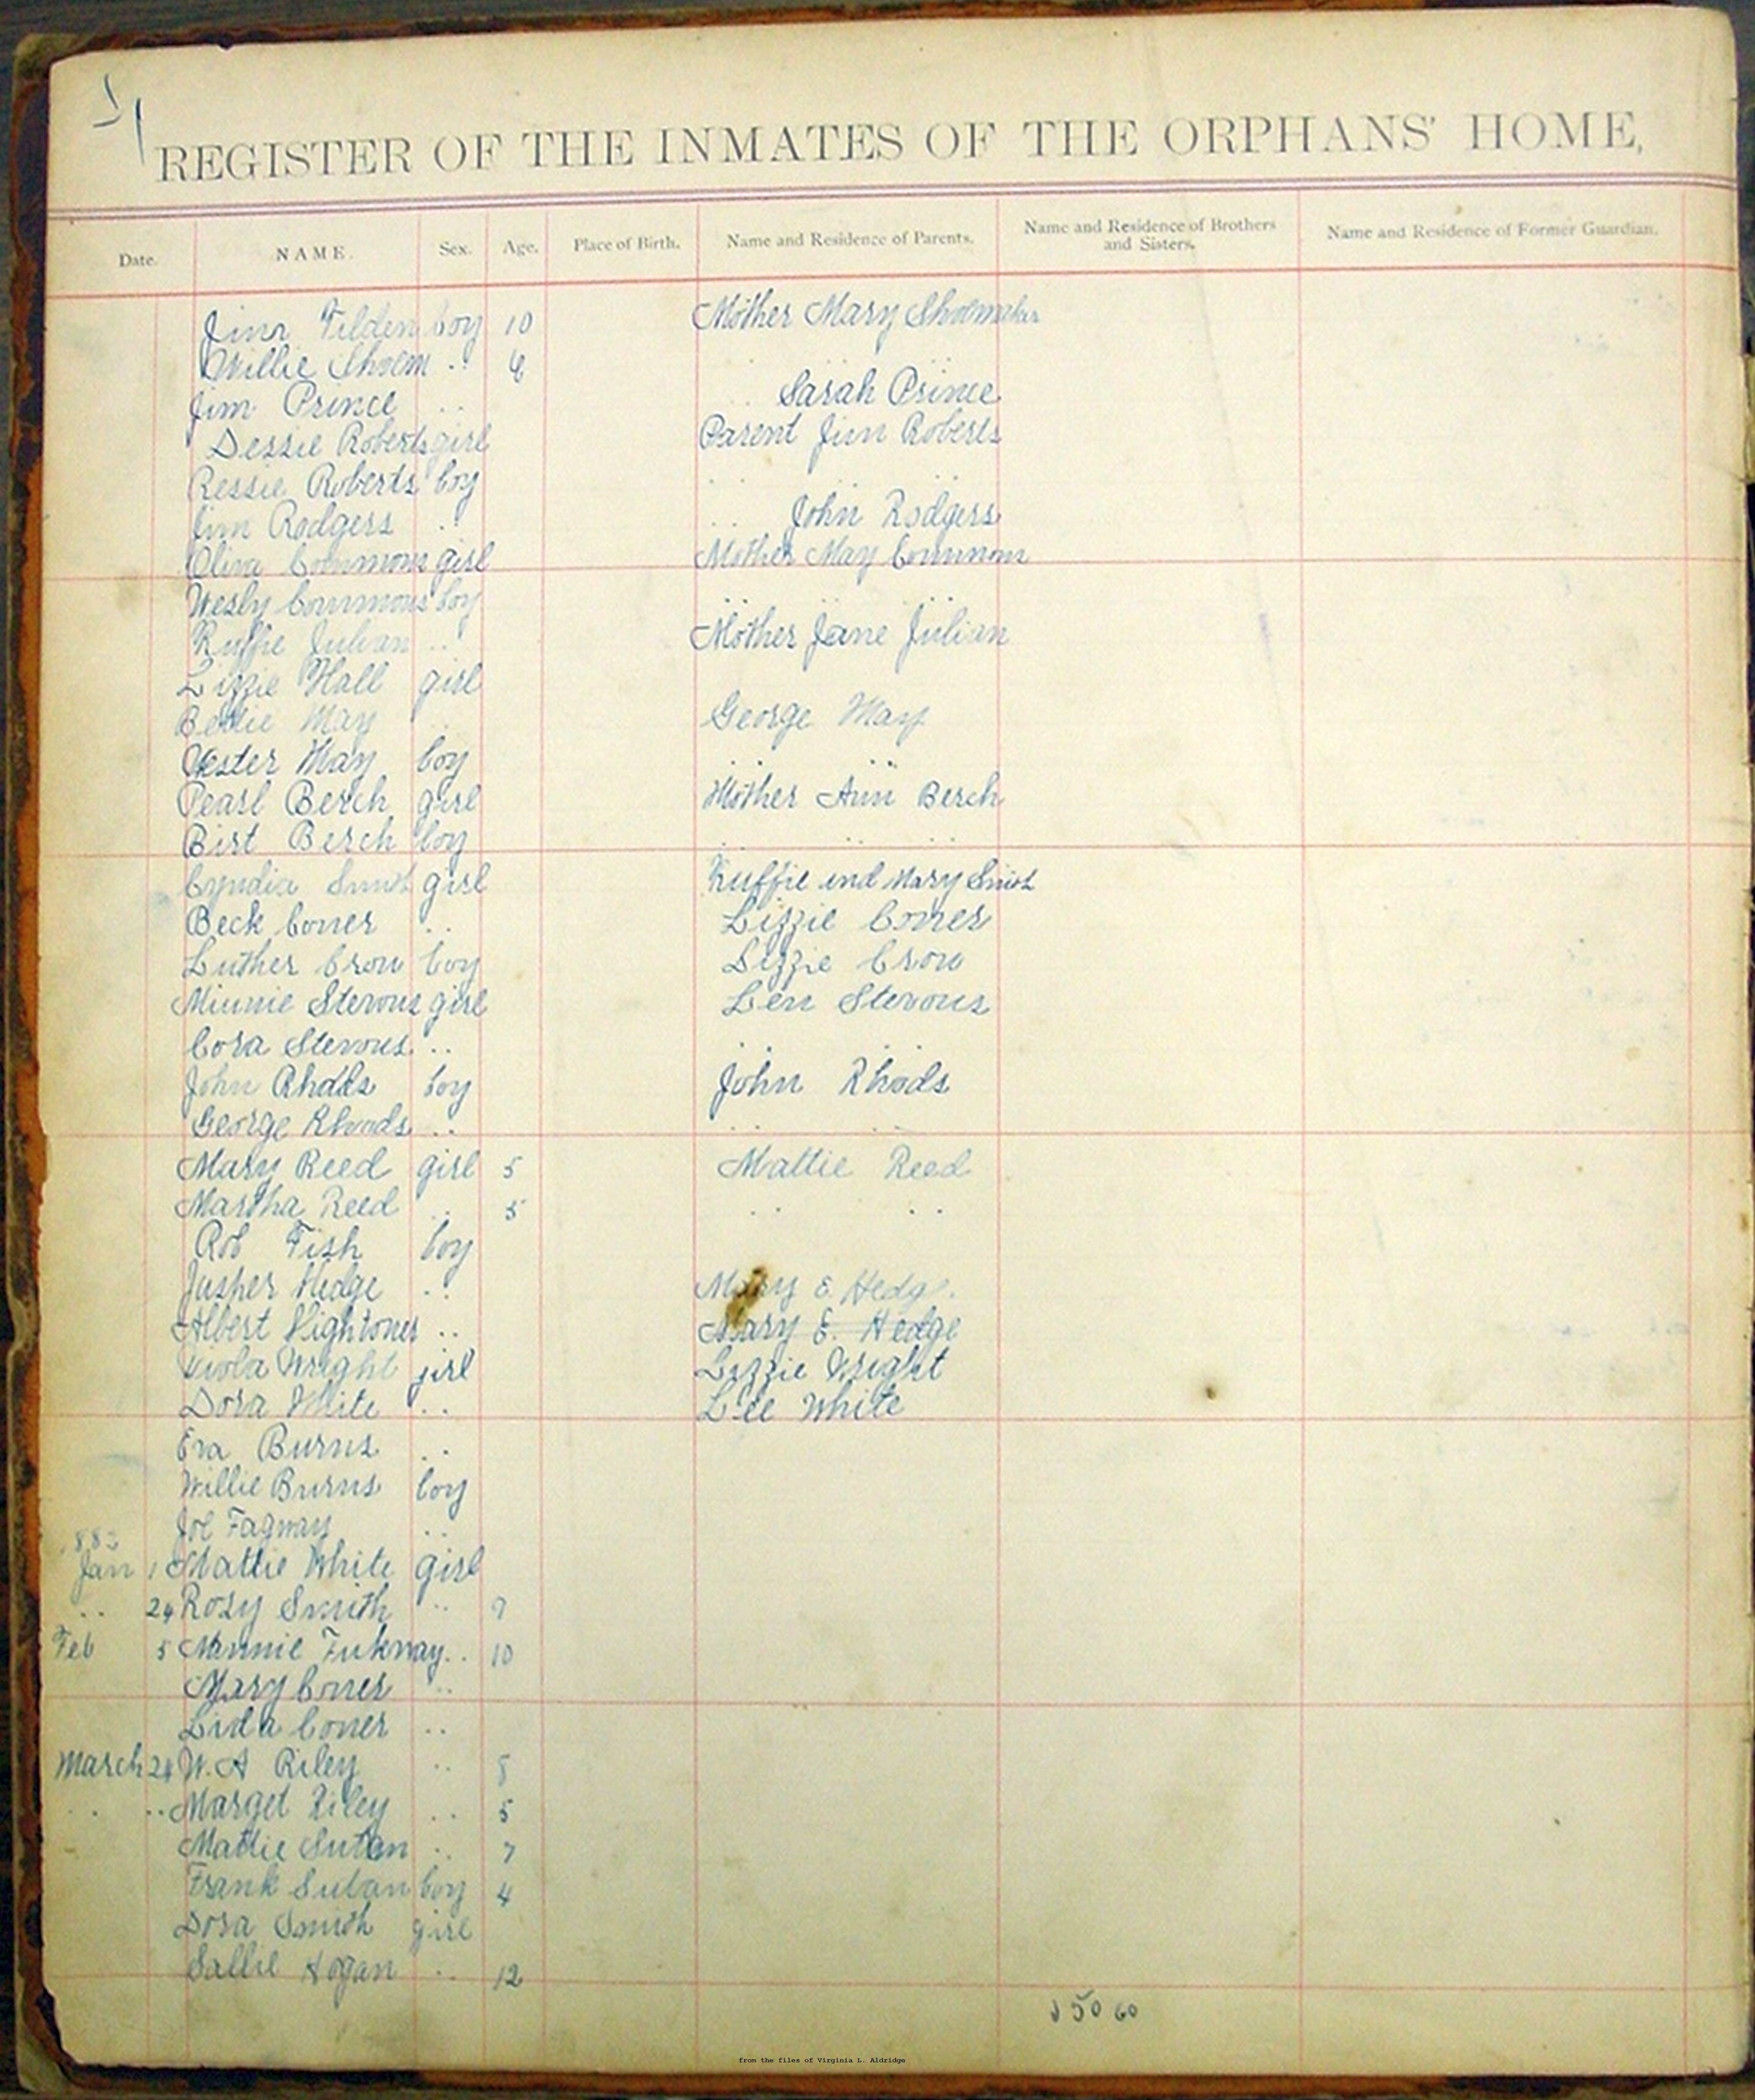 REGISTER OF THE INMATES OF THE ORPHANS' HOME,
Date. NAME. Sex. Age. Place of Birth. Name and Residence of Parents. Name and Residence of Brothers and Sisters. Name and Residence of Former Guardian.
Jim Tilden boy 10 Mother Mary Shoemaker
Willie Shoem .. 6 .. ..
Jim Prince .. .. Sarah Prince
Dessie Roberts girl Parent Jim Roberts
Ressie Roberts boy .. .. ..
Jim Rodgers .. .. John Rodgers
Oliva Commons girl Mother May Commons
Wesly Commons boy .. .. ..
Ruffie Julian .. Mother Jane Julian
Lizzie Hall girl
Bettie May .. George May
Vester May boy .. ..
Pearl Berch girl Mother Ann Berch
Birt Berch boy .. .. ..
Cyndia Smith girl Ruffie and Mary Smith
Beck Coner .. Lizzie Coner
Luther Crow boy Lizzie Crow
Minnie Stevons girl Len Stevons
Cora Stevons .. .. ..
John Rhodds boy John Rhods
George Rhoads .. .. ..
Mary Reed girl 5 Mattie Reed
Martha Reed .. 5 .. ..
Rob Fish boy
Jusper Hedge .. Mary E. Hedg.
Albert Hightoner .. Mary E. Hedge
Viola Wright girl Lizzie Wright
Dora White .. Lee White
Eva Burns ..
Willie Burns boy
Joe Fagway ..
1883
Jan 1 Mattie White girl
.. 24 Rosy Smith .. 9
Feb 5 Minnie Fukway .. 10
Mary Coner ..
Lida Coner ..
March 24 W. A Riley .. 8
.. .. Marget Riley .. 5
Mattie Sutan .. 7
Frank Sutan boy 4
Dora Smith girl
Sallie Hogan .. 12
50 60
from the files of Virginia L. Aldridge